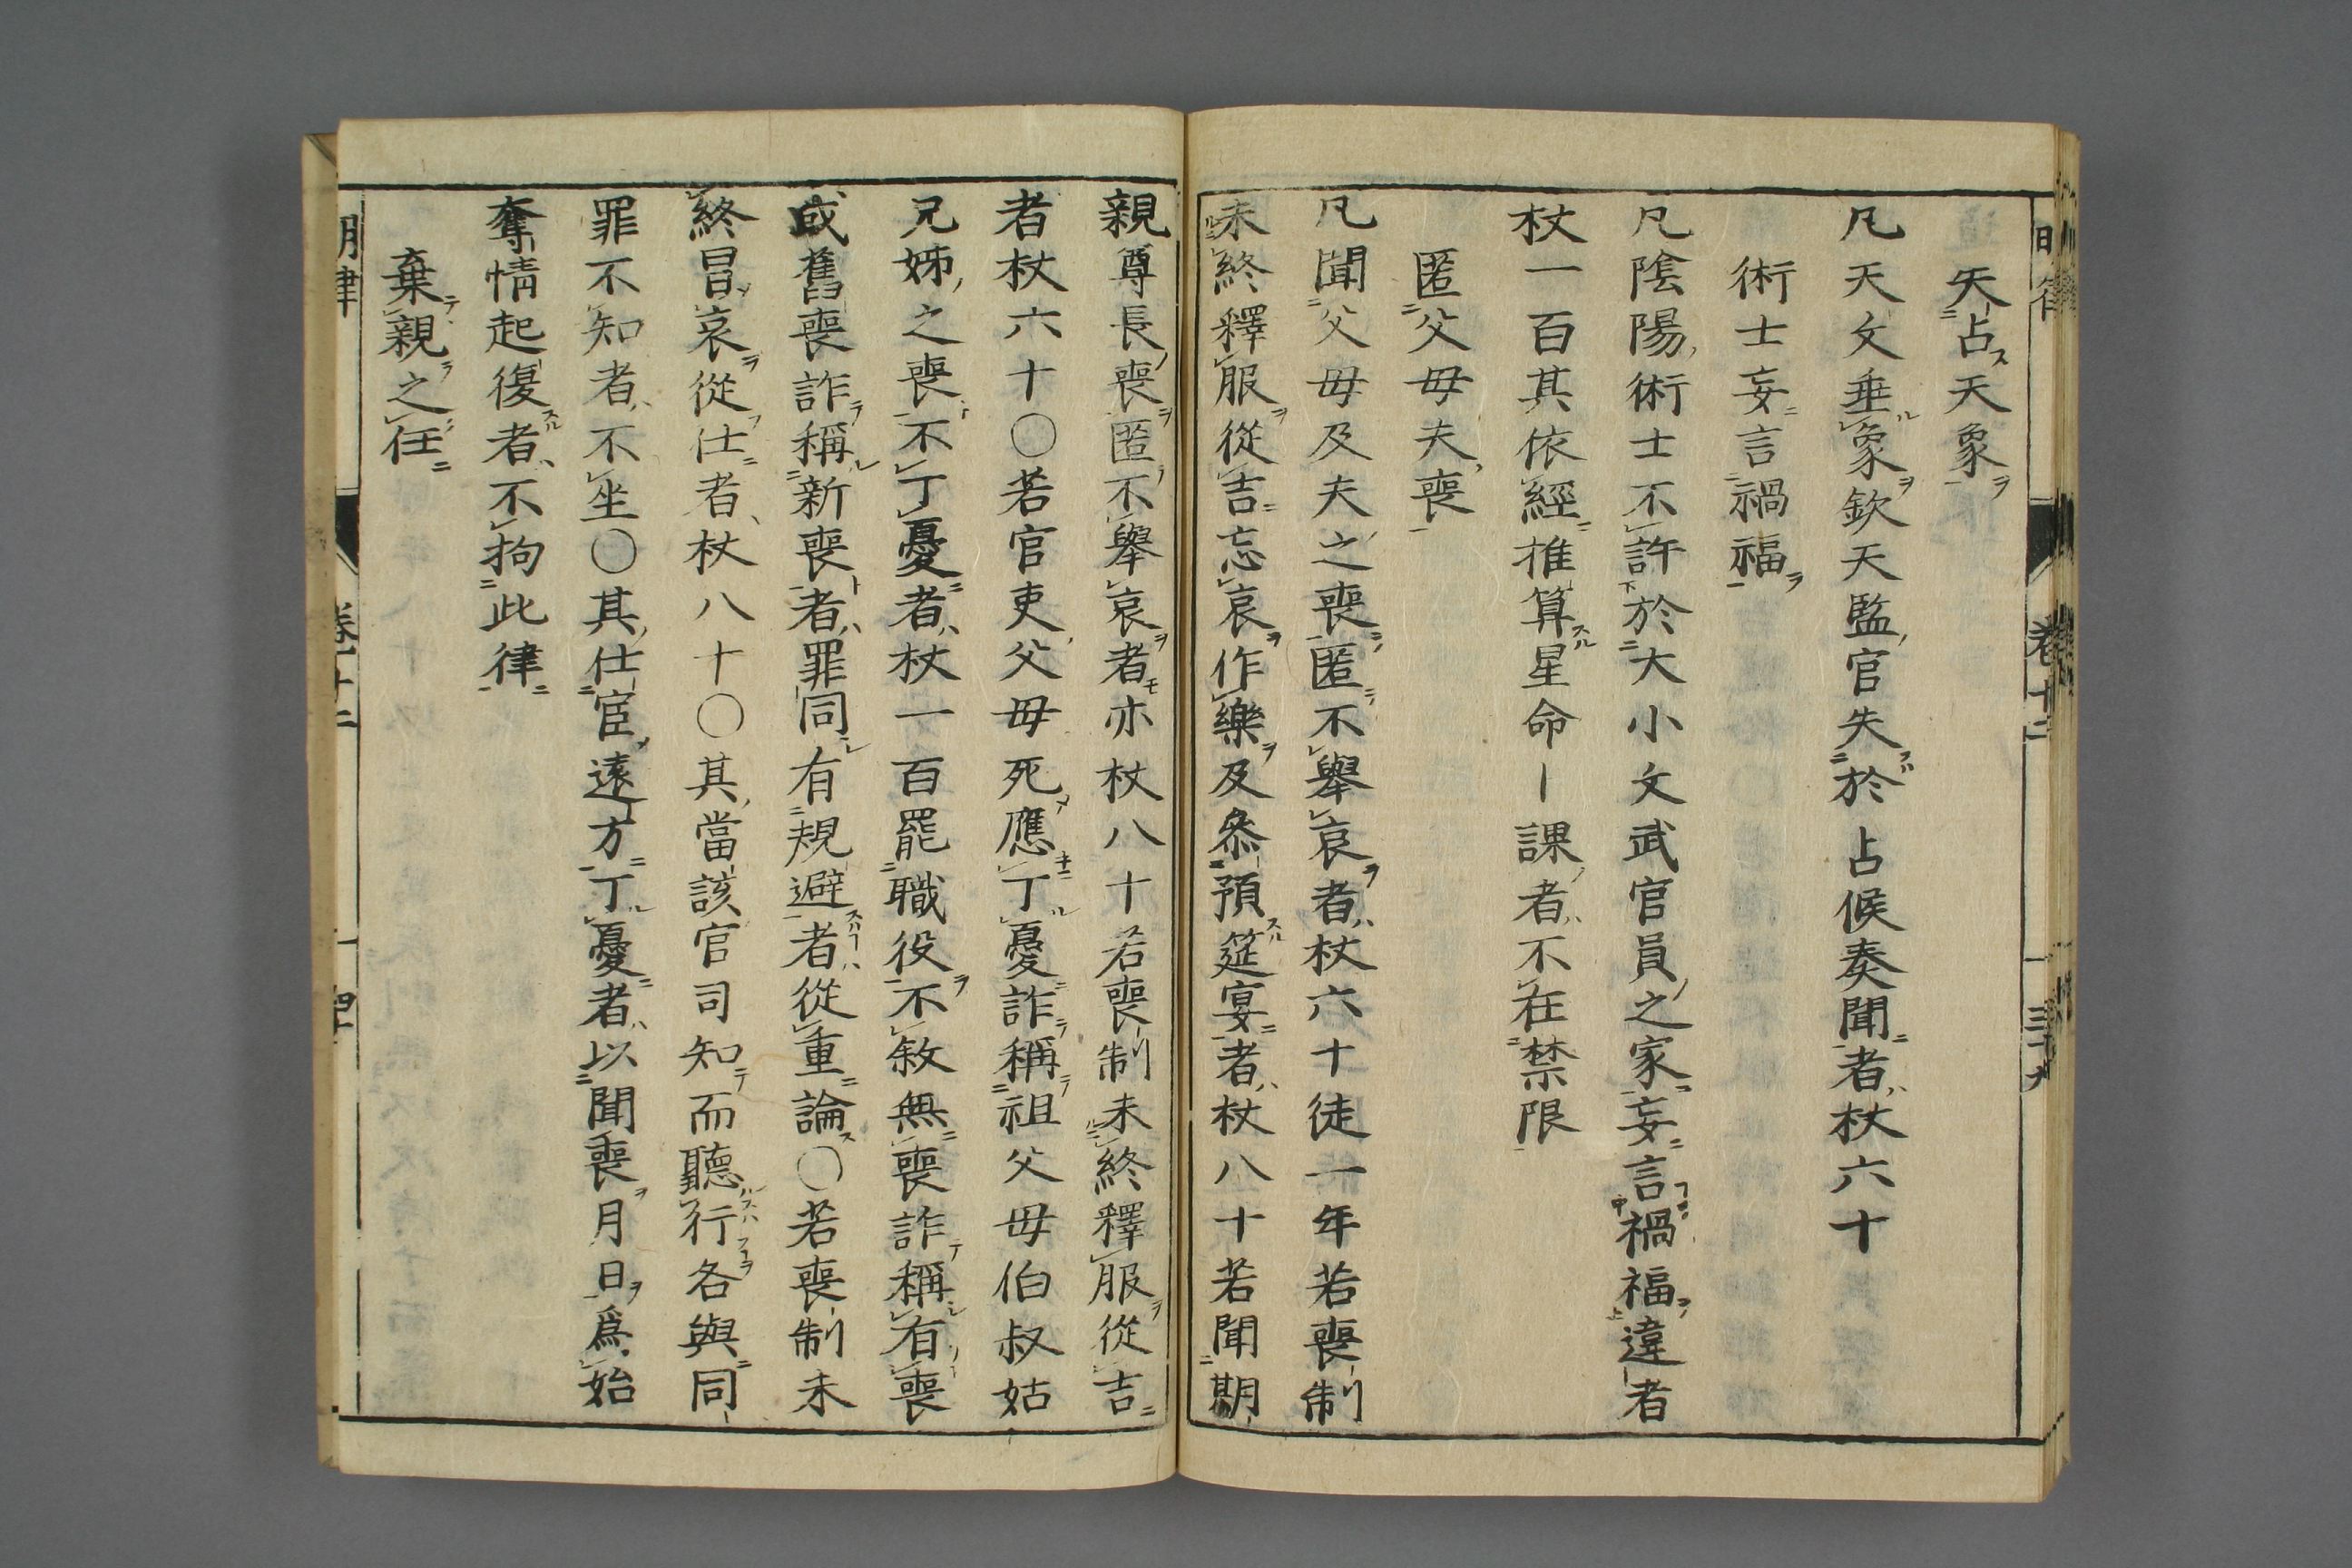 失占天象
凡天文垂象欽天監官失於占候奏聞者杖六十
術士妄言禍福
凡陰陽術士不許於大小文武官員之家妄言禍福違者
杖一百其依經推算星命卜課者不在禁限
匿父母夫喪
凡聞父母及夫之喪匿不舉哀者杖六十徒一年若喪制
未終釋服從吉忘哀作樂及叅預筵宴者杖八十若聞期
親尊長喪匿不舉哀者亦杖八十若喪制未終釋服從吉
者杖六十〇若官吏父母死應丁憂詐稱祖父母伯叔姑
兄姊之喪不丁憂者杖一百罷職役不敘無喪詐稱有喪
或舊喪詐稱新喪者罪同有規避者從重論〇若喪制未
終冒哀從仕者杖八十〇其當該官司知而聽行各與同
罪不知者不坐〇其仕宦遠方丁憂者以聞喪月日爲始
奪情起復者不拘此律
棄親之任
明律 卷十二